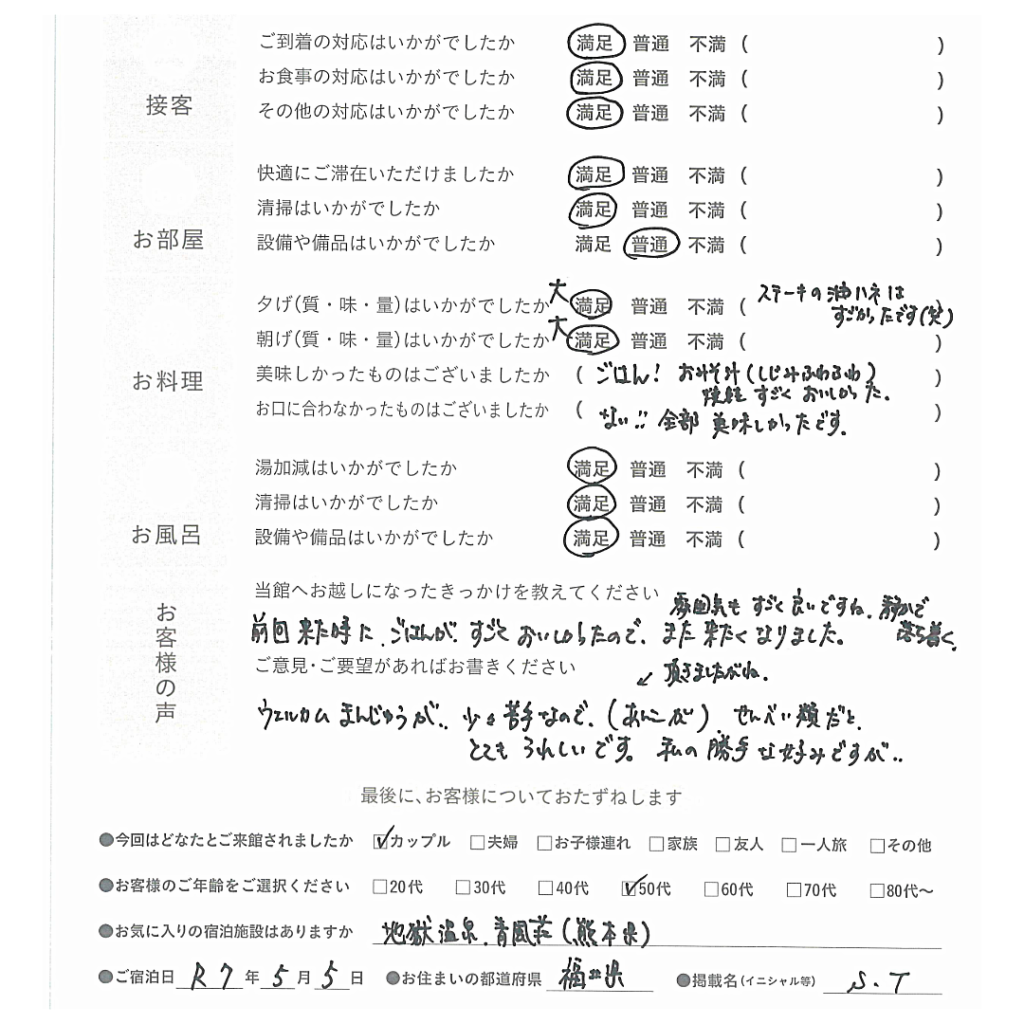 接客
ご到着の対応はいかがでしたか 満足 普通 不満 ( )
お食事の対応はいかがでしたか 満足 普通 不満 ( )
その他の対応はいかがでしたか 満足 普通 不満 ( )
お部屋
快適にご滞在いただけましたか 満足 普通 不満 ( )
清掃はいかがでしたか 満足 普通 不満 ( )
設備や備品はいかがでしたか 満足 普通 不満 ( )
お料理
夕げ(質・味・量)はいかがでしたか 大 満足 普通 不満 ( ステーキの油ハネは
すごかったです(笑) )
朝げ(質・味・量)はいかがでしたか 大 満足 普通 不満 ( )
美味しかったものはございましたか ( ごはん! おみそ汁(しじみふわふわ)
すごくおいしかった。 )
お口に合わなかったものはございましたか ( ない!! 全部 美味しかったです。 )
お風呂
湯加減はいかがでしたか 満足 普通 不満 ( )
清掃はいかがでしたか 満足 普通 不満 ( )
設備や備品はいかがでしたか 満足 普通 不満 ( )
お客様の声
当館へお越しになったきっかけを教えてください
雰囲気も すごく良いですね。静かで
落ち着く。
前回 来た時に、ごはんが、すごく おいしかったので、また 来たくなりました。
ご意見・ご要望があればお書きください
↙ 頂きましたがね。
ウェルカム まんじゅうが、少々苦手なので、(あんこが) せんべい類だと、
とても うれしいです。私の勝手な好みですが..
最後に、お客様についておたずねします
●今回はどなたとご来館されましたか ☑カップル □夫婦 □お子様連れ □家族 □友人 □一人旅 □その他
●お客様のご年齢をご選択ください □20代 □30代 □40代 ☑50代 □60代 □70代 □80代〜
●お気に入りの宿泊施設はありますか 地獄温泉 青風荘(熊本県)
●ご宿泊日 R7 年 5 月 5 日 ●お住まいの都道府県 福井県 ●掲載名(イニシャル等) S.T